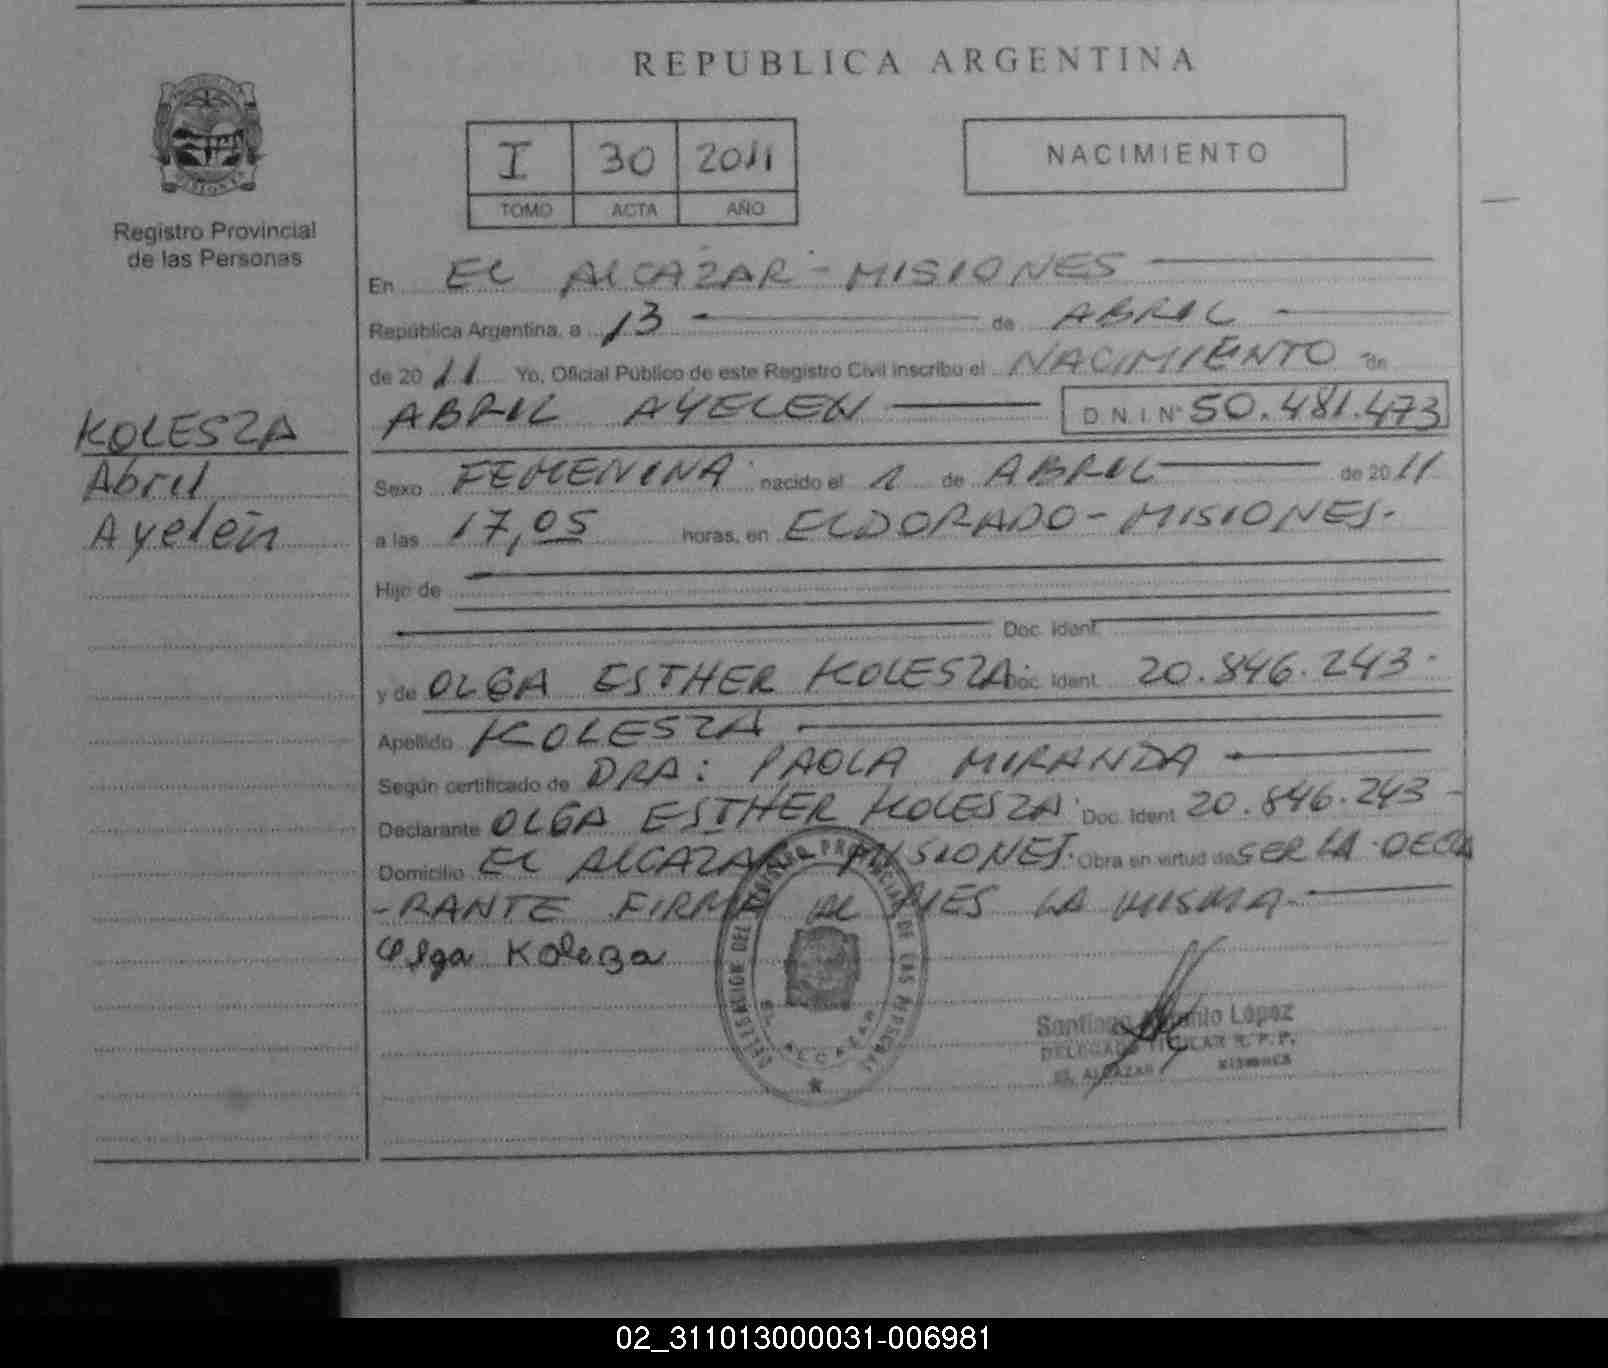 REPUBLICA ARGENTINA
I 30 2011
TOMO ACTA AÑO
NACIMIENTO
Registro Provincial
de las Personas
KOLESZA
Abril
Ayelén
En EL ALCAZAR - MISIONES
República Argentina, a 13 de ABRIL
de 2011 Yo, Oficial Público de este Registro Civil inscribo el NACIMIENTO de
ABRIL AYELEN D.N.I. Nº 50.481.473
Sexo FEMENINA nacido el 1 de ABRIL de 2011
a las 17,05 horas, en ELDORADO - MISIONES.
Hijo de
Doc. Ident.
y de OLGA ESTHER KOLESZA Doc. Ident. 20.846.243.
Apellido KOLESZA
Según certificado de DRA: PAOLA MIRANDA
Declarante OLGA ESTHER KOLESZA Doc. Ident. 20.846.243 -
Domicilio EL ALCAZAR - MISIONES. Obra en virtud de SER LA DECLA
-RANTE FIRMA AL PIES LA MISMA
Olga Kolesza
DELEGACION DEL REGISTRO PROVINCIAL DE LAS PERSONAS
EL ALCAZAR
Santiago López
DELEGADO TITULAR R. P. P.
EL ALCAZAR MISIONES
02_311013000031-006981